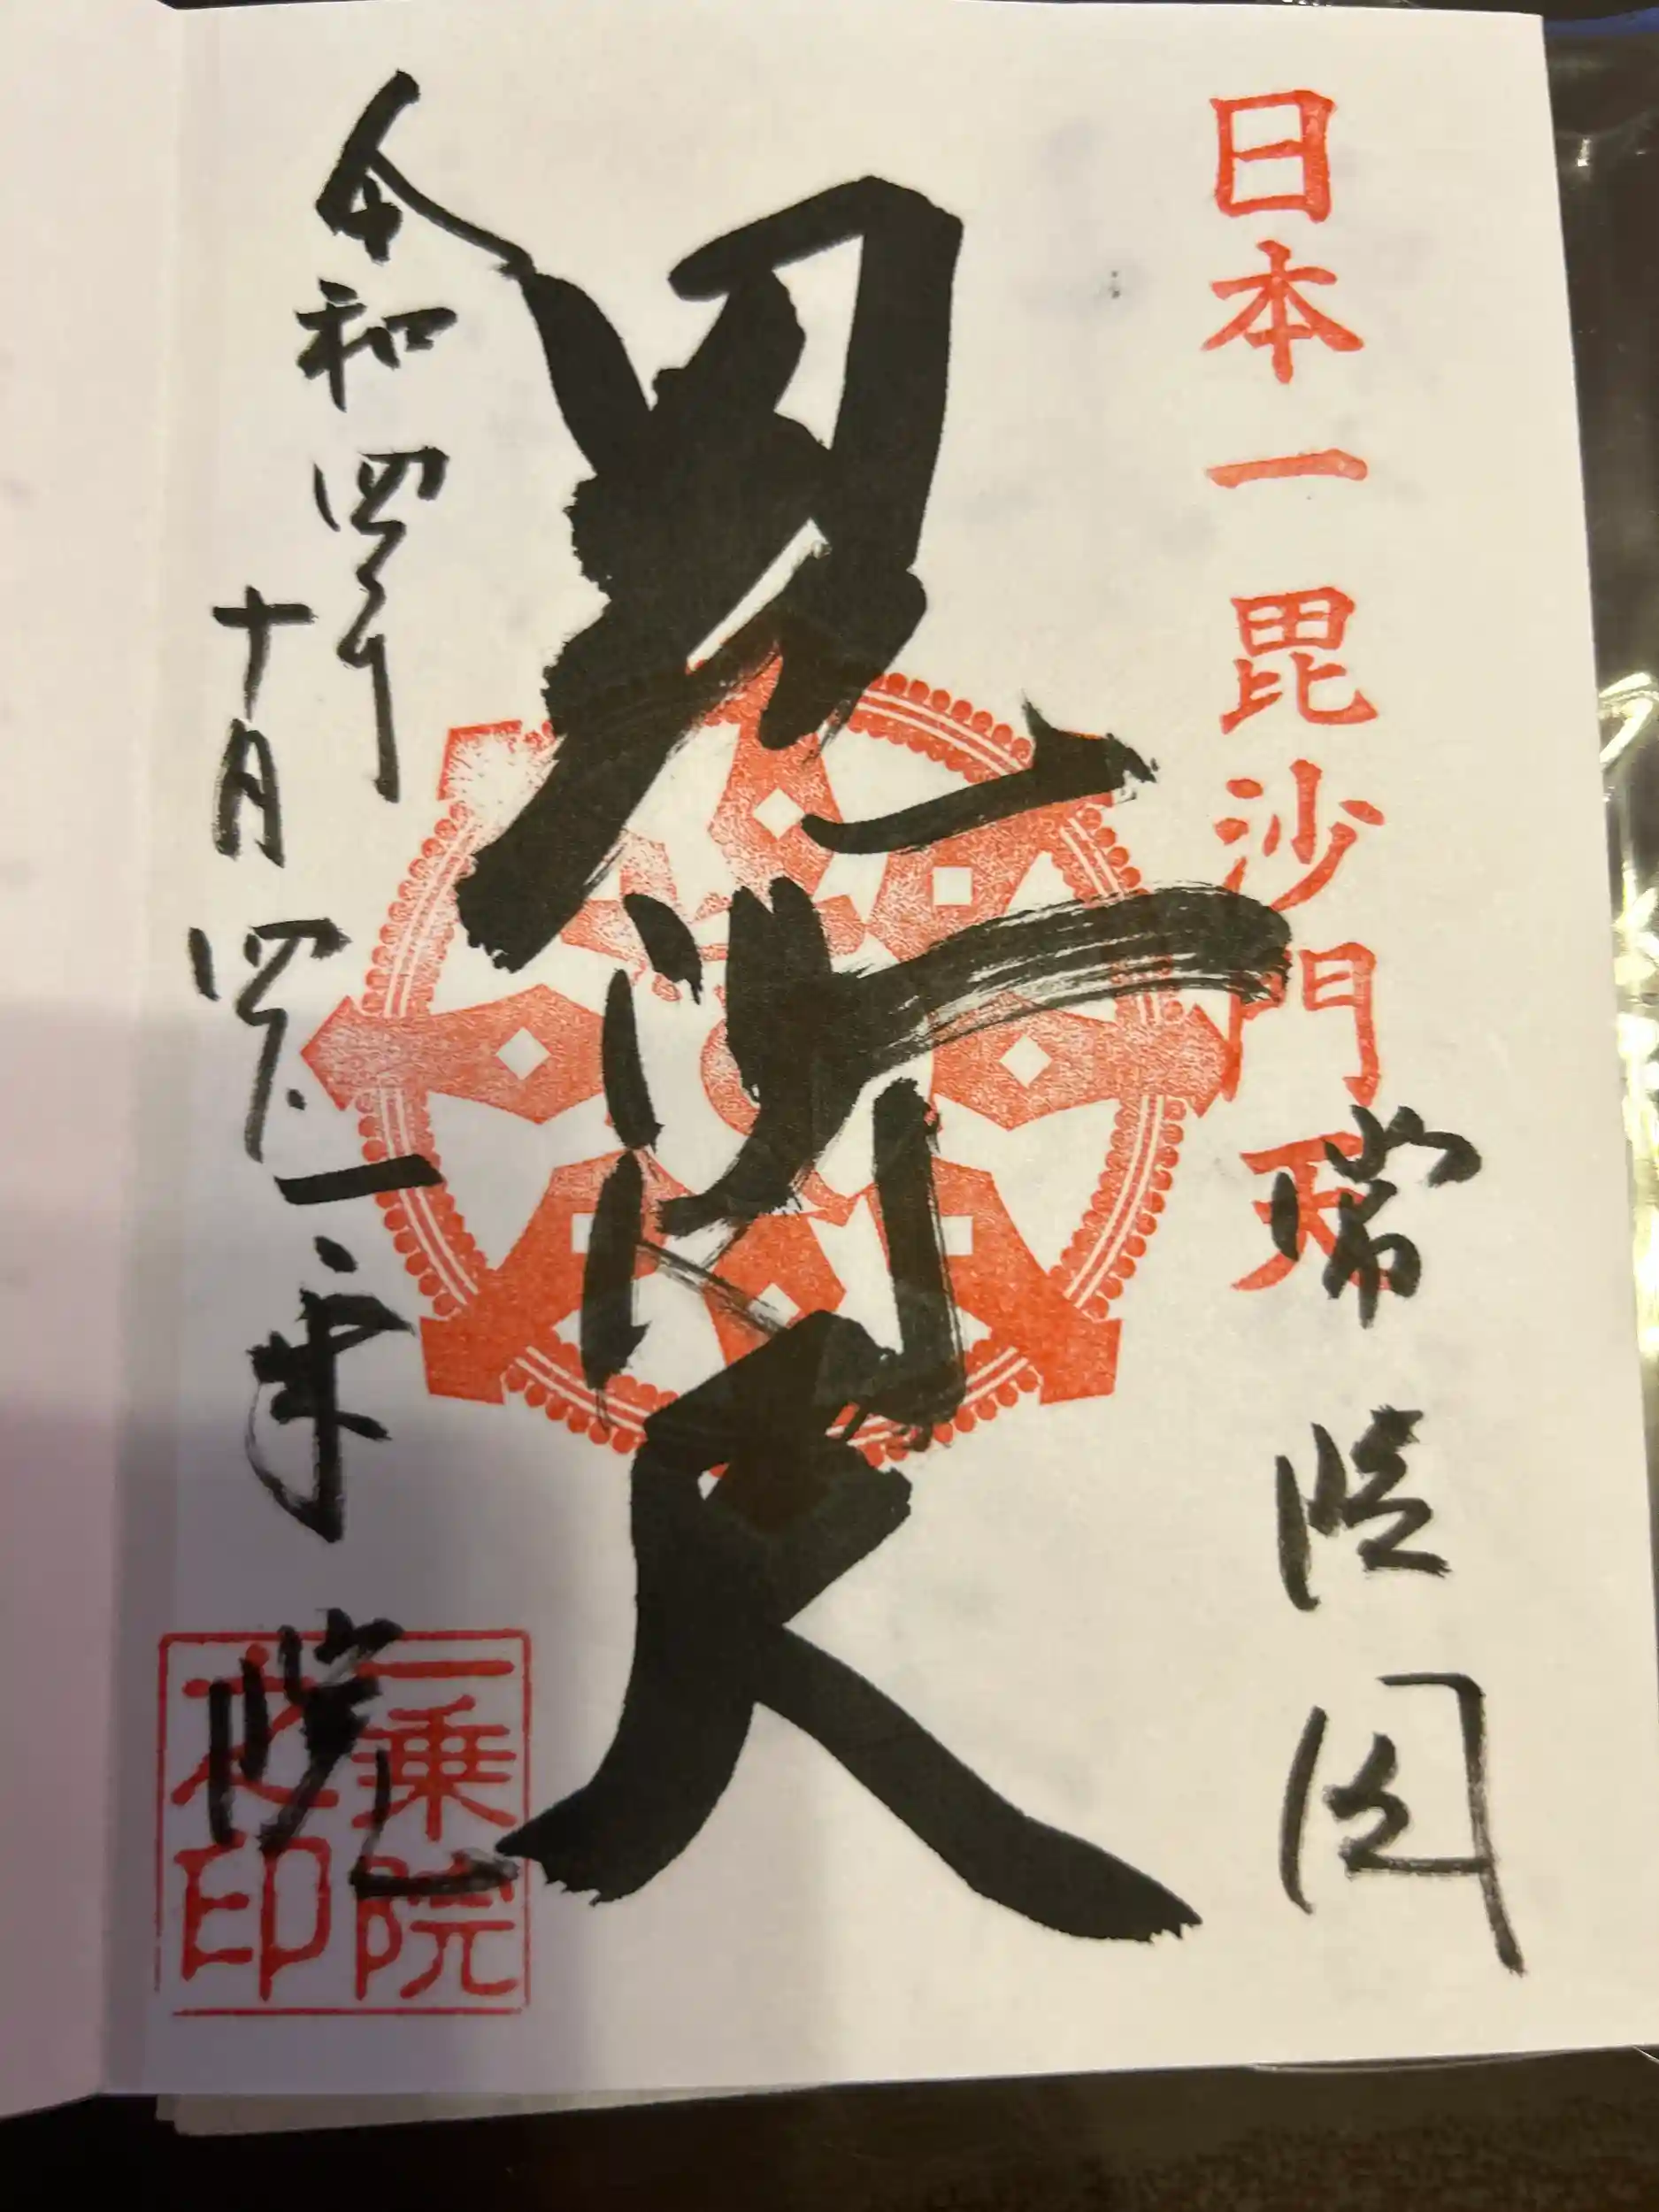 日本一毘沙門天
瑞陰図
毘沙門天
令和四年
十月四日
一乗院
一乗院
之印